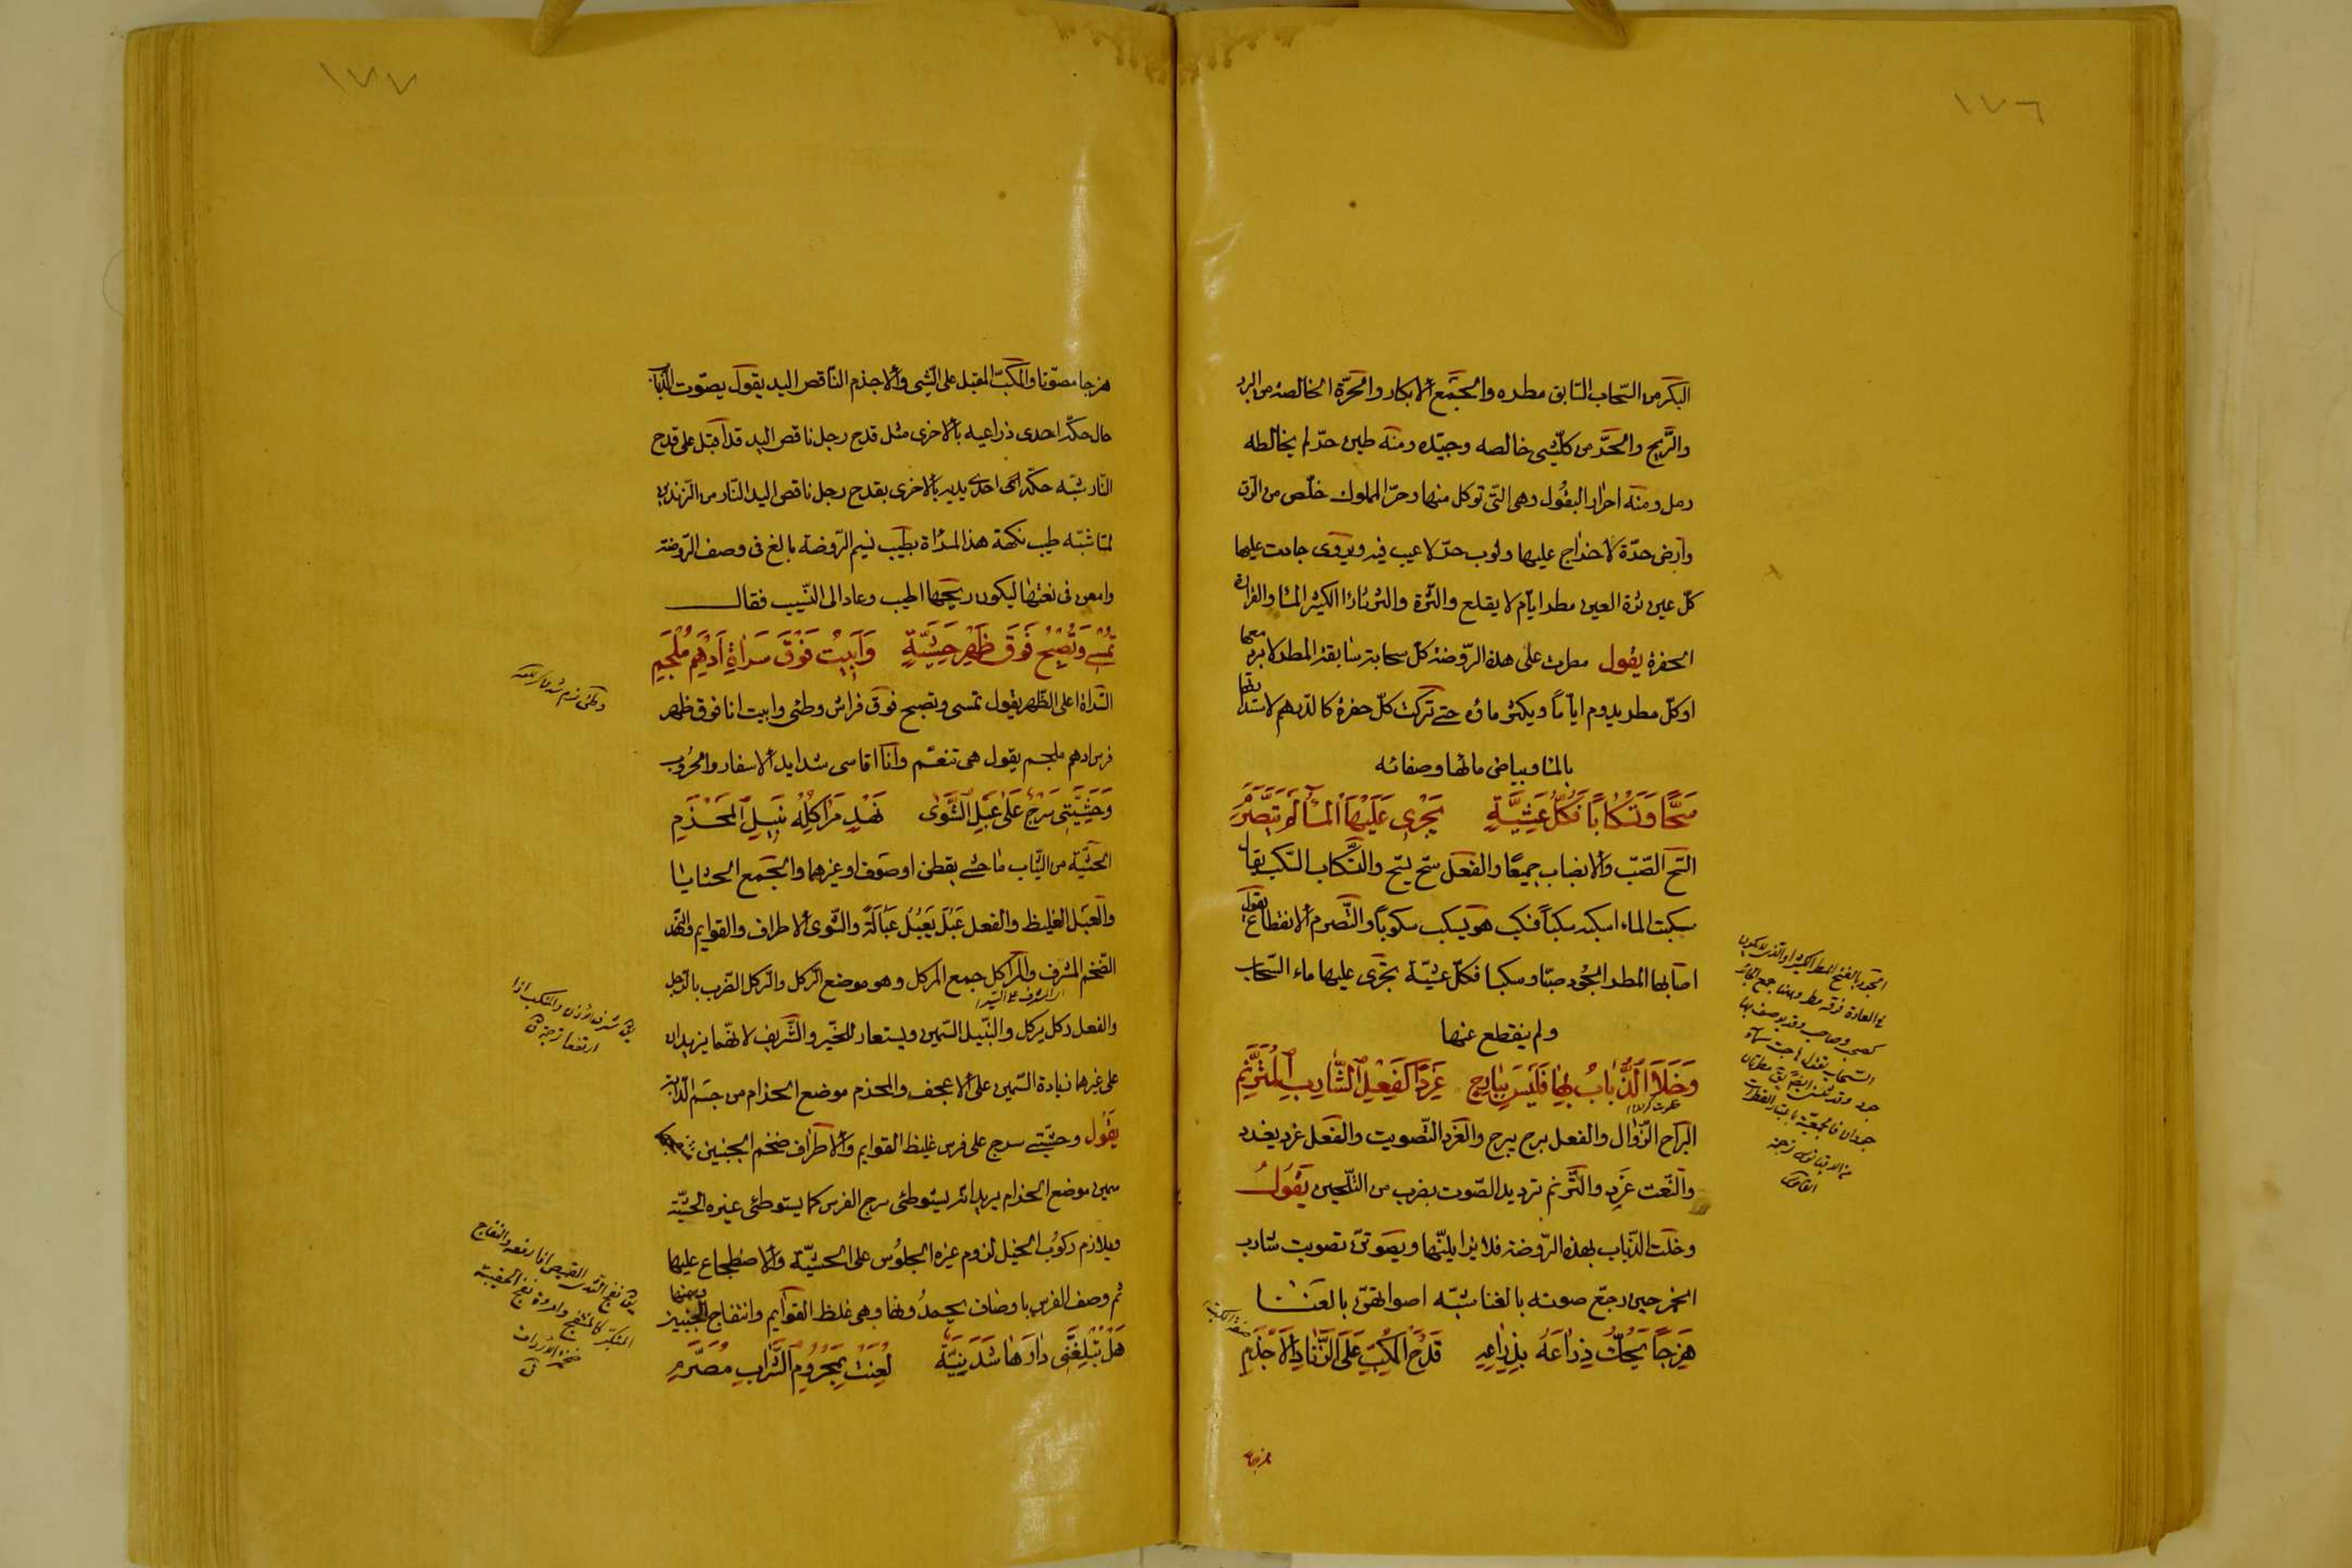 ١٧٦
البكر من السّحاب السّابق مطره والجمع الابكار والحرّة الخالصة من البرد
والرّيح والحرّ من كلّ شى خالصه وجيّده ومنه طين حرّ لم يخالطه
رمل ومنه احرار البقول وهى الّتى توكل منها وحرّ المملوك خلص من الرّق
وارض حرّة لا خراج عليها وثوب حرّ لا عيب فيه ويروى جادت عليها
كلّ عين ثرّة العين مطر ايّام لا يقلع والثّرّة والثرثارة الكثير الماء والقرارة
الحفرة يقول مطرت على هذه الرّوضة كلّ سحابة سابقة المطر لا برد معها
او كلّ مطر يدوم ايّاماً ويكثر ماؤه حتى تركت كلّ حفرة كالدّرهم لاستدارتها
بالماء وبياض مائها وصفائه
سَحًّا وَتَسْكَاباً فَكُلَّ عَشِيَّةٍ يَجْرِى عَلَيْهَا الْمَآءُ لَمْ يَتَصَرَّمِ
السّح الصّبّ والانصباب جميعًا والفعل سحّ يسحّ والتّسكاب السّكب يقال
سكبت الماء اسكبه سكباً فسكب هو يسكب سكوباً والتّصرّم الانقطاع يقول
اصابها المطر الجود صبّا وسكبا فكلّ عشيّة يجرى عليها ماء السّحاب
ولم ينقطع عنها
وَخَلَا الذُّبَابُ بِهَا فَلَيْسَ بِبَارِحٍ غَرِدًا كَفِعْلِ الشَّارِبِ الْمُتَرَنِّمِ
البراح الزّوال والفعل برح يبرح والغرد التّصويت والفعل غرد يغرد
والنّعت غَرِد والتّرنم ترديد الصّوت بضرب من التّلحين يَقُولُ
وخلت الذّباب بهذه الرّوضة فلا يزايلنّها ويصوتن تصويت شارب
الخمر حين رجّع صوته بالغناء شبّه اصواتهنّ بالغنا
هَزِجًا يَحُكُّ ذِرَاعَهُ بِذِرَاعِهِ قَدْحَ الْمُكِبِّ عَلَى الزِّنَادِ الْاَجْذَمِ
هزجا
الجود بالفتح المطر الكثير
١٧٧
هزجا مصوّتا والمكبّ المقبل على الشّى والاجذم النّاقص اليد يقول يصوّت الذّباب
حال حكّه احدى ذراعيه بالاخرى مثل قدح رجل ناقص اليد قد اقبل على قدح
النّار شبّه حكّه احدى يديه بالاخرى بقدح رجل ناقص اليد النّار من الزّندين
لمّا شبّه طيب نكهة هذا المراة بطيب نسيم الرّوضة بالغ فى وصف الرّوضة
وامعن فى نعتها ليكون ريحها اطيب وعاد الى النّسيب فقال
تُمْسِى وَتُصْبِحُ فَوْقَ ظَهْرِ حَشِيَّةٍ وَاَبِيتُ فَوْقَ سَرَاةِ اَدْهَمَ مُلْجَمِ
السّراة اعلى الظّهر يقول تمسى وتصبح فوق فراش وطئى وابيت انا فوق ظهر
فرس ادهم ملجم يقول هى تنعّم وانا اقاسى شدايد الاسفار والحروب
وَحَشِيَّتِى سَرْجٌ عَلَى عَبْلِ الشَّوَى نَهْدٍ مَرَاكِلُهُ نَبِيلِ الْمَحْزِمِ
الحشيّة من الثّياب ما حشى بقطن او صوف او غيرهما والجمع الحشايا
والعبل الغليظ والفعل عَبُلَ يَعْبُلُ عَبَالَةً والشّوى الاطراف والقوايم والنّهد
الضّخم المشرف والمراكل جمع المركل وهو موضع الرّكل والرّكل الضّرب بالرّجل
والفعل ركل يركل والنّبيل السّمين ويستعار للخير والشّريف لانّهما يزيدان
على غيرهما زيادة السّمين على الاعجف والمحزم موضع الحزام من جسم الدّابة
يقول وحشيّتى سرج على فرس غليظ القوايم والاطراف ضخم الجنبين
سمين موضع الحزام يريد انّه يستوطئى سرج الفرس كما يستوطئى غيره الحشيّة
ويلازم ركوب الخيل لزوم غيره الجلوس على الحشيّة والاضطجاع عليها
ثم وصف الفرس باوصاف يحمدونها وهى غلظ القوايم وانتفاج الجنبين وسمنها
هَلْ تُبْلِغَنِّى دَارَهَا شَدَنِيَّةٌ لُعِنَتْ بِمَحْرُومِ الشَّرَابِ مُصَرَّمِ